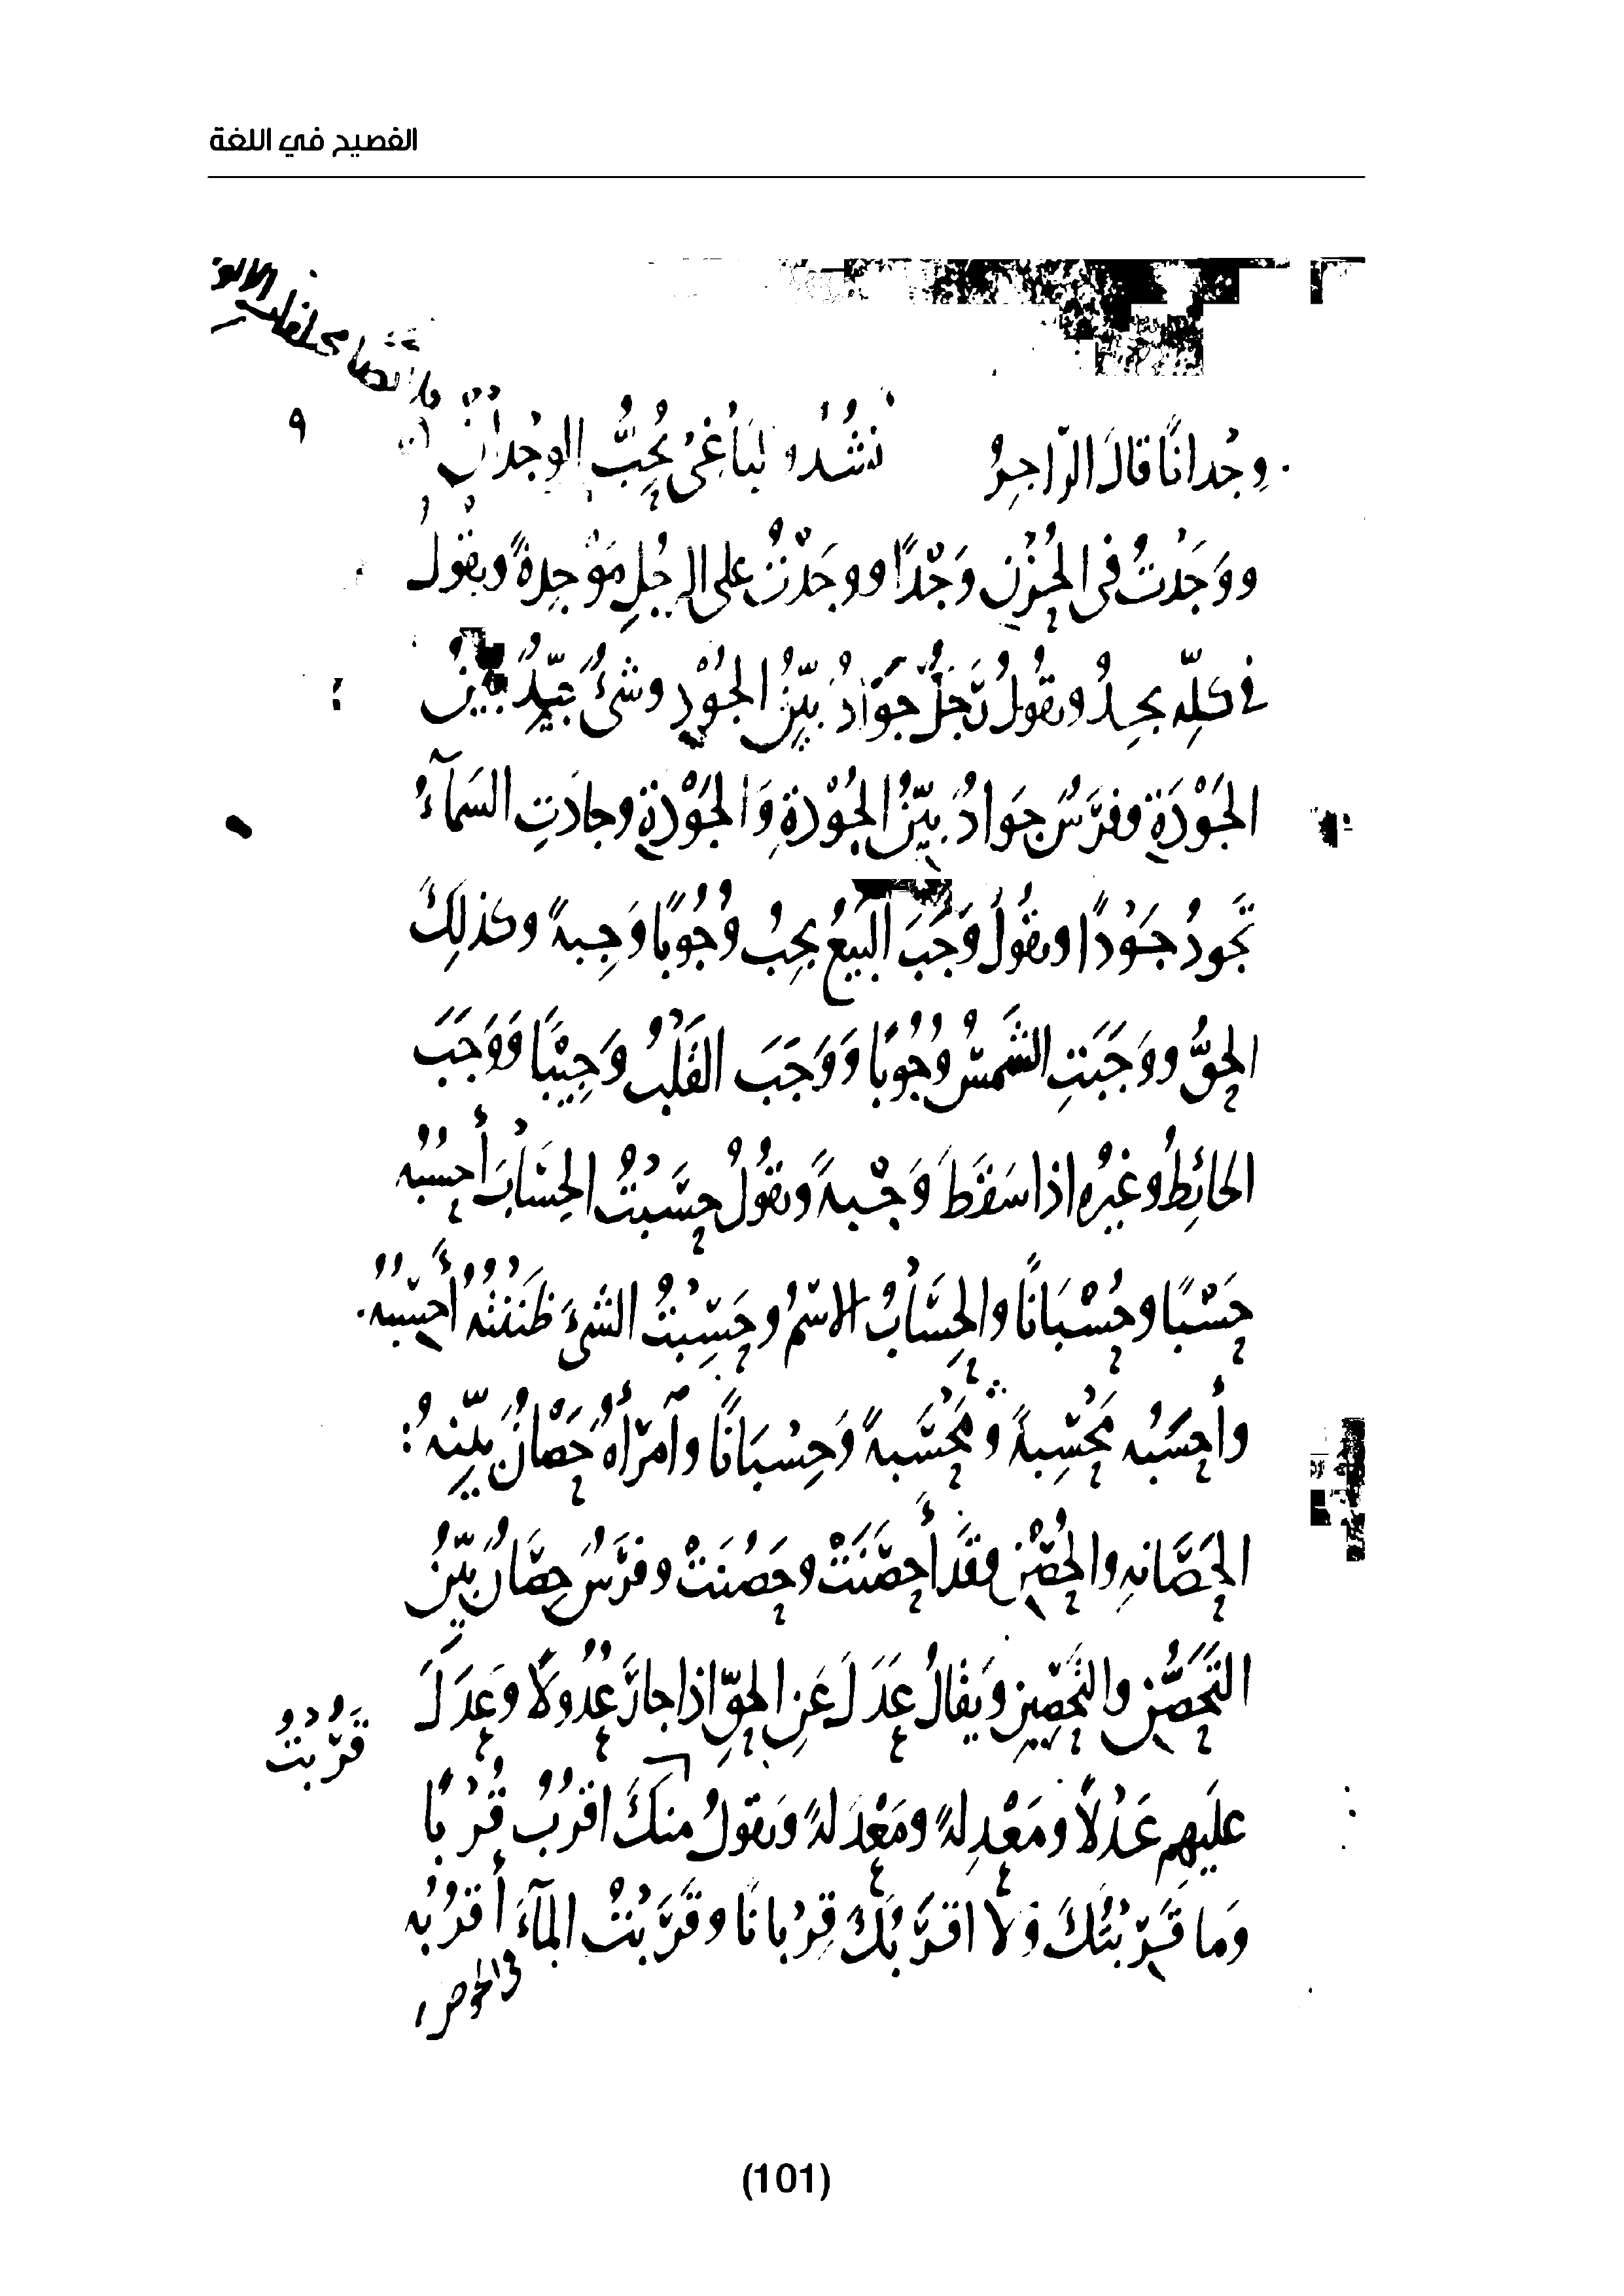 الفصيح في اللغة
٩
وِجْدانًا قالَ الرّاجِزُ أَنْشُدُ لبَاغي يُحِبُّ الوِجْدانْ
ووَجَدْتُ في الحُزْنِ وَجْدًا ووجَدْتُ على الرجُلِ مَوْجِدةً ويقولُ
في كلِّه يجِدُ وتقُولُ رَجُلٌ جَوَادٌ بيِّنُ الجُوْدِ وشيءٌ جيِّدٌ بيّنُ
الجَوْدَةِ وفرَسٌ جَوادٌ بيّنُ الجُوْدةِ وَالجَوْدَةِ وجادَتِ السَمآءُ
تَجودُ جَوْدًا وتقُولُ وَجَبَ البَيعُ يجِبُ وُجُوبًا وَجِبةً وكذلِكَ
الحقُّ ووَجَبَتِ الشَّمسُ وُجُوبًا وَوَجَبَ القَلْبُ وَجِيْبًا وَوَجَبَ
الحائِطُ وغيرُه اذا سَقَطَ وَجْبةً وتقُولُ حسَبْتُ الحِسَابَ أحسُبُه
حَسْبًا وحُسْبَانًا والحِسَابُ الاسْمُ وحَسِبْتُ الشيءَ ظَنَنْتُه أَحسِبُهُ
وأحسَبُه مَحْسِبةً ومَحْسَبةً وَحِسْبَانًا وآمرَأةٌ حَصَانٌ بيّنةُ
الحَصَانهِ والحُصْنِ وقَد أَحصَنَتْ وحَصُنَتْ وفرَسٌ حِصَانٌ بيّنُ
التَحَصُّنِ والتَحصِينِ وَيقالُ عَدَلَ عَنِ الحقِّ اذا جارَ عُدُولًا وَعَدَلَ
علَيهِم عَدْلًا ومَعْدِلةً ومَعْدَلةً وَتقولُ منكَ اقرُبُ قُرْبًا
قَرُبْتُ
وَما قَرِبْتُكَ وَلا اقرَبُكَ قِرْبانًا وقَرَبْتُ المآءَ أقرُبُه
في الحوض
(101)